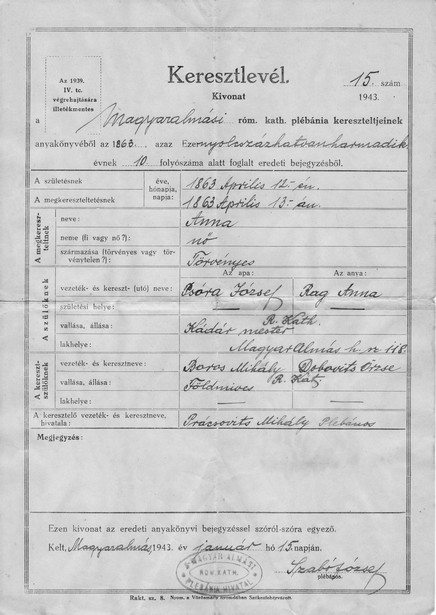 Az 1939.
IV. tc.
végrehajtására
illetékmentes
Keresztlevél.
Kivonat
15. szám
1943.
a Magyaralmási róm. kath. plébánia kereszteltjeinek
anyakönyvéből az 1863. azaz Ezernyolcszázhatvanharmadik
évnek 10. folyószáma alatt foglalt eredeti bejegyzésből.
A születésnek éve, hónapja, napja: 1863 Április 12-én.
A megkereszteltetésnek 1863 Április 13-án.
A megkereszteltnek
neve: Anna
neme (fi vagy nő?): nő
származása (törvényes vagy törvénytelen?): Törvényes
Az apa: Az anya:
A szülőknek
vezeték- és kereszt- (utó) neve: Bóra József Rag Anna
születési helye: — —
vallása, állása: Kádár mester R. Kath.
lakhelye: Magyar Almás h. sz 118.
A keresztszülőknek
vezeték- és keresztneve: Boros Mihály Dobovits Örzse
vallása, állása: Földmives R. Kat.
lakhelye: — —
A keresztelő vezeték- és keresztneve, hivatala: Prácsovits Mihály plébános
Megjegyzés:
Ezen kivonat az eredeti anyakönyvi bejegyzéssel szóról-szóra egyező.
Kelt, Magyaralmás 1943. év január hó 15. napján.
MAGYAR ALMÁSI
ROM. KATH.
PLÉBÁNIA HIVATAL
Szabó József
plébános.
Rakt. sz. 8. Nyom. a Vörösmarty nyomdában Székesfehérvárott